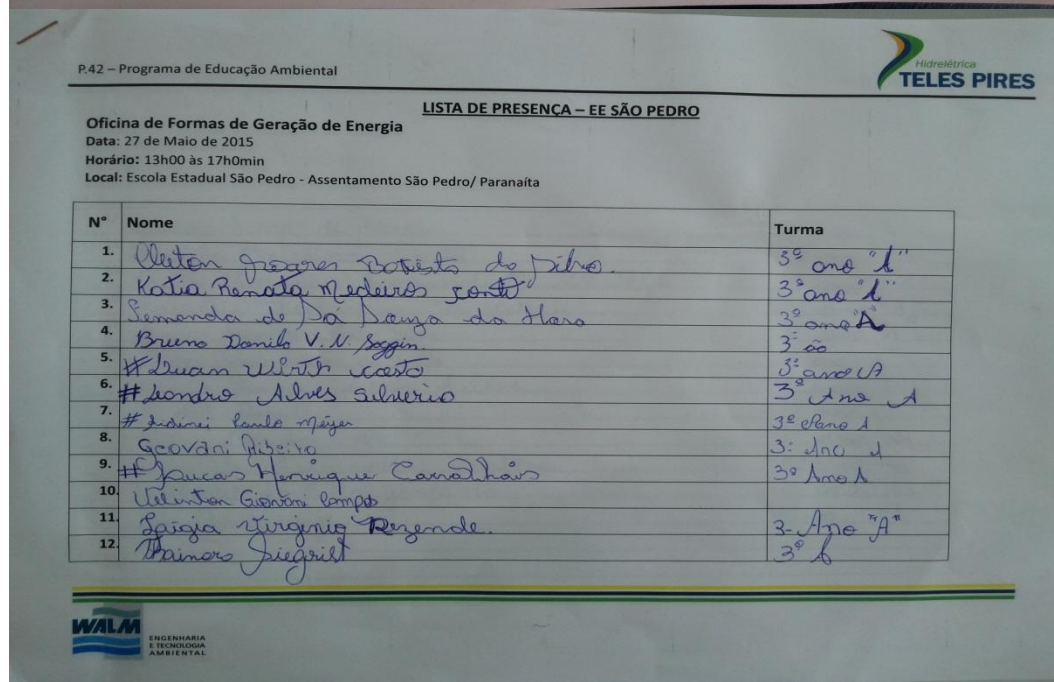 P.42 – Programa de Educação Ambiental
Hidrelétrica
TELES PIRES
LISTA DE PRESENÇA – EE SÃO PEDRO
Oficina de Formas de Geração de Energia
Data: 27 de Maio de 2015
Horário: 13h00 às 17h0min
Local: Escola Estadual São Pedro - Assentamento São Pedro/ Paranaíta
N° Nome Turma
1. Cleiton Soares Batista da Silva. 3º ano "A"
2. Katia Renata Medeiros 3º ano "A"
3. de Sá Souza da 3º ano "A"
4. Bruno Danilo V. N. Soggin. 3º
5. #Luan Wirth 3º ano A
6. #Leandro Alves Silverio 3º Ano A
7. # Paulo Meyer 3º Ano A
8. Geovani Ribeiro 3º Ano A
9. #Lucas Henrique Carvalhais 3º Ano A
10. Giovani Campos
11. Virginia Rezende. 3- Ano "A"
12. Siegrist 3º A
WALM
ENGENHARIA
E TECNOLOGIA
AMBIENTAL